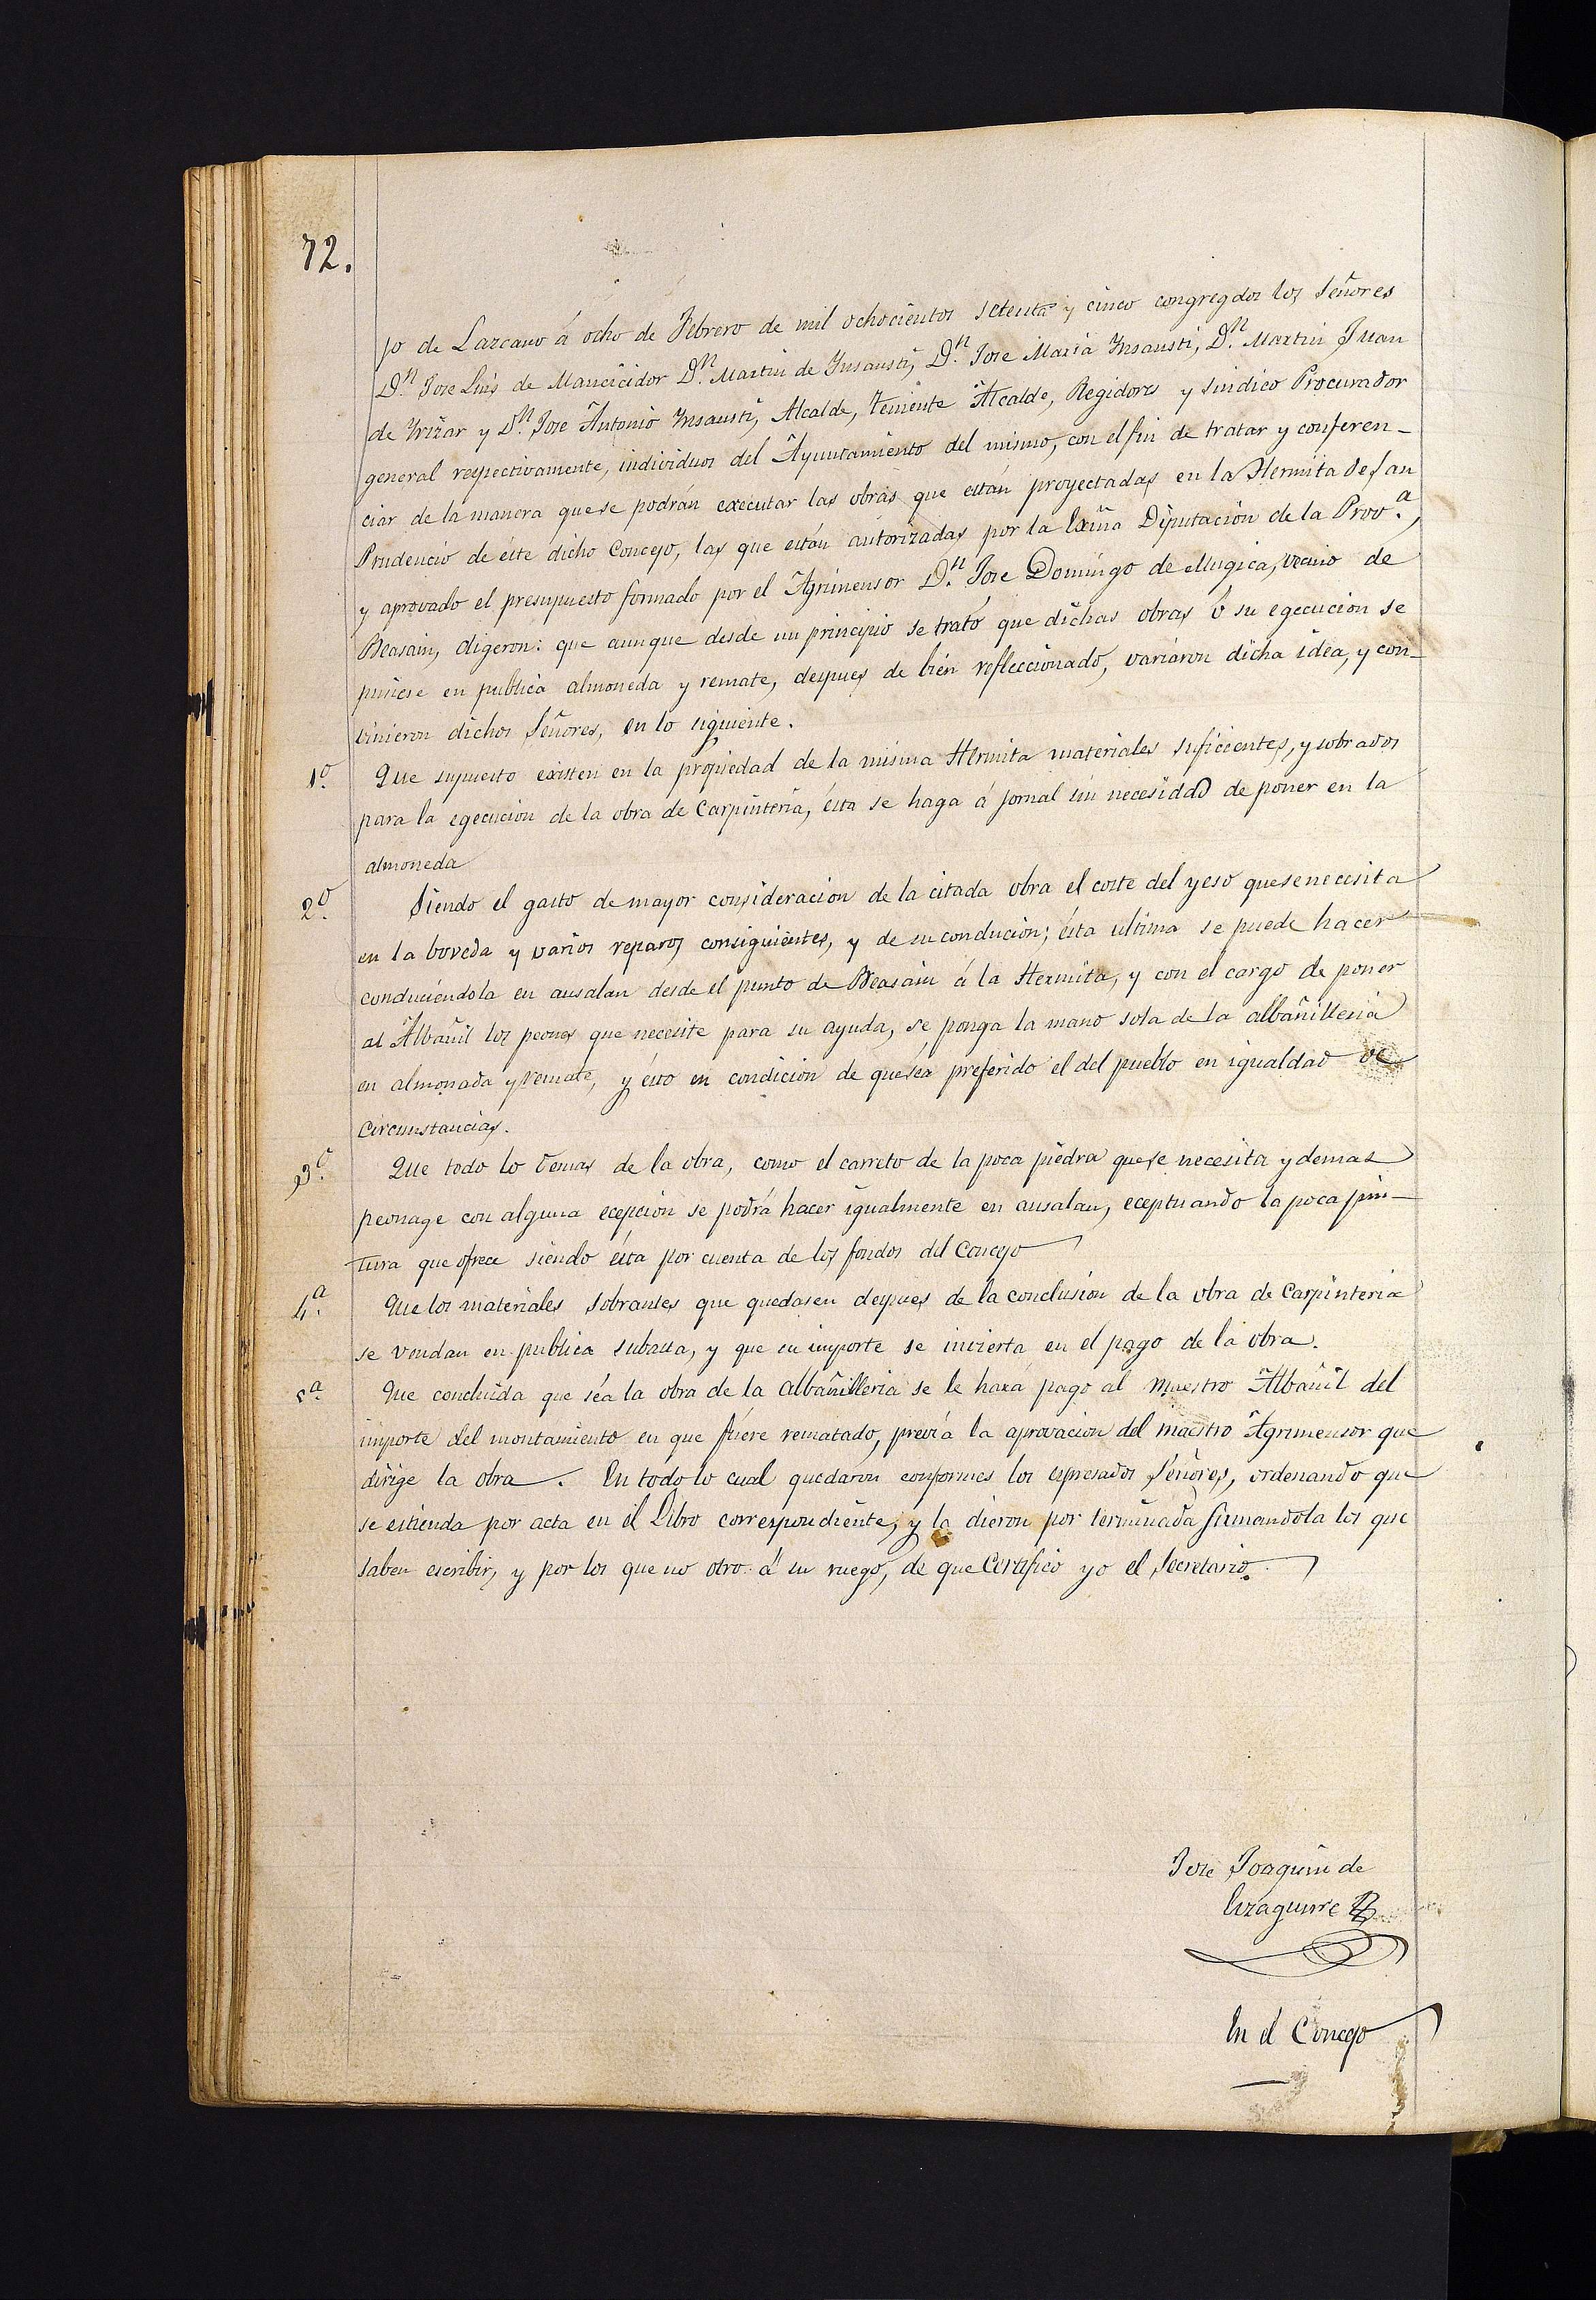 72.
jo de Lazcano á ocho de Febrero de mil ochocientos setenta y cinco congregdos los Señores
D.n Jose Luis de Mancicidor D.n Martin de Ynsausti, D.n Jose Maria Ynsausti, D.n Martin Juan
de Yrizar y D.n Jose Antonio Ynsausti, Alcalde, Teniente Alcalde, Regidores y sindico Procurador
general respectivamente, individuos del Ayuntamiento del mismo, con el fin de tratar y conferen-
ciar de la manera que se podrán executar las obras que están proyectadas en la Hermita de San
Prudencio de éste dicho Concejo, las que están autorizadas por la Exma Diputacion de la Prov.a,
y aprovado el presupuesto formado por el Agrimensor D.n Jose Domingo de Mugica, vecino de
Beasain, digeron: que aunque desde un principio se trató que dichas obras ó su egecucion se
pusiese en publica almoneda y remate, despues de bién refleccionado, variáron dicha idea, y con-
vinieron dichos Señores, en lo siguiente.
1.o Que supuesto existen en la propiedad de la misma Hermita materiales suficientes, y sobrados
para la egecucion de la obra de Carpinteria, ésta se haga á jornal sin necesidad de poner en la
almoneda
2.o Siendo el gasto de mayor consideracion de la citada obra el coste del yeso que se necesita
en la boveda y varios reparos consiguientes, y de su conducion; ésta ultima se puede hacer
conduciéndola en ausalan desde el punto de Beasain á la Hermita, y con el cargo de poner
al Albañil los peones que necesite para su ayuda, se ponga la mano sola de la albañilleria
en almonada y remate, y ésto en condicion de que séa preferido el del pueblo en igualdad de
circunstancias.
3.o Que todo lo demas de la obra, como el carreto de la poca piedra que se necesita y demas
peonage con alguna ecepcion se podrá hacer igualmente en ausalan, eceptuando la poca pin-
tura que ofrece siendo ésta por cuenta de los fondos del Concejo
4.a Que los materiales sobrantes que quedasen despues de la conclusion de la obra de Carpinteria
se vendan en publica subasta, y que su importe se invierta en el pago de la obra.
5.a Que concluida que séa la obra de la albañilleria se le hará pago al Maestro Albañil del
importe del montamiento en que fuere rematado, previa la aprovacion del maestro Agrimensor que
dirige la obra. En todo lo cual quedaron conformes los espresados Señores, ordenando que
se estienda por acta en el Libro correspondiente, y la dieron por terminada firmandola los que
saben escribir, y por los que no otro á su ruego, de que Certifico yo el Secretario.
Jose Joaquin de
Eizaguirre
En el Concejo